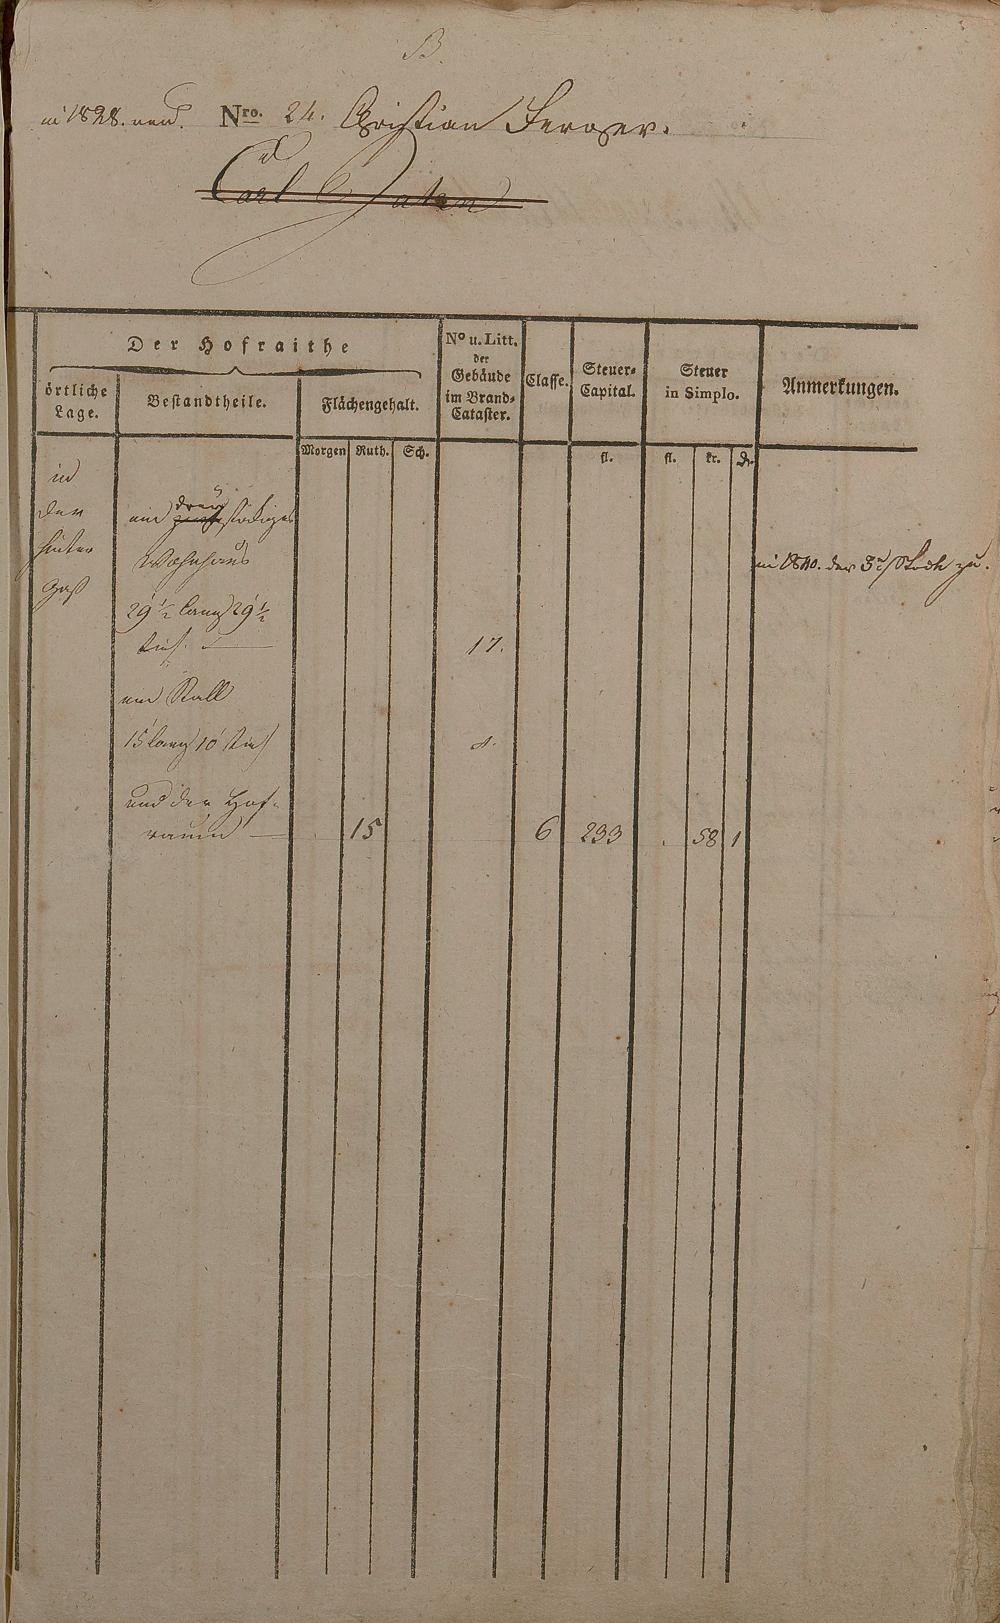 B.
in 1828. Nro. 24. Christian Ferger.
Carl
Der Hofraithe
örtliche Lage.
Bestandtheile.
Flächengehalt.
No u. Litt. der Gebäude im Brand-Cataster.
Classe.
Steuer-Capital.
Steuer in Simplo.
Anmerkungen.
Morgen Ruth. Sch. fl. fl. kr. d.
in
der
hinter
Gaß
drey
ein zwey stöckiges
Wohnhaus
29 1/2 lang 29 1/2
tief. 17.
in 1840. der 3te Stock zu.
ein Stall
15' lang 10' tief a.
und der Hof-
raum 15 6 233 . 58 1